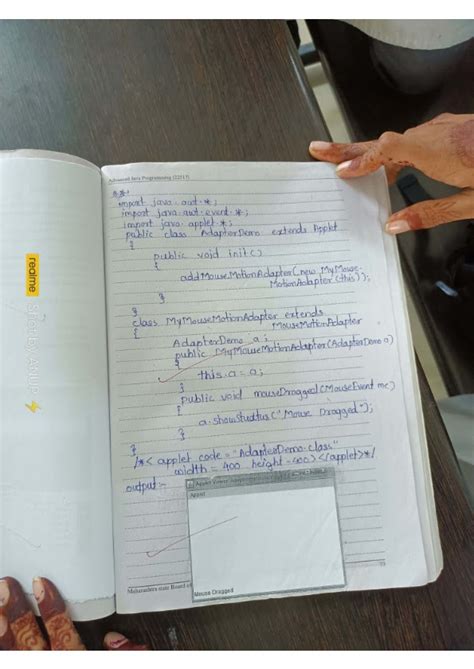 Advanced Java Programming (22517)
import java.awt.*;
import java.awt.event.*;
import java.applet.*;
public class AdapterDemo extends Applet
{
public void init()
{
addMouseMotionAdapter(new MyMouse-
MotionAdapter(this));
}
}
class MyMouseMotionAdapter extends
MouseMotionAdapter
{
AdapterDemo a;
public MyMouseMotionAdapter(AdapterDemo a)
{
this.a = a;
}
public void mouseDragged(MouseEvent me)
{
a.showStudtus("Mouse Dragged");
}
}
/*< applet code = "AdapterDemo.class"
width = 400 height -400></applet>*/
output :-
Applet Viewer
Applet
Mouse Dragged
Maharashtra state Board of
realme